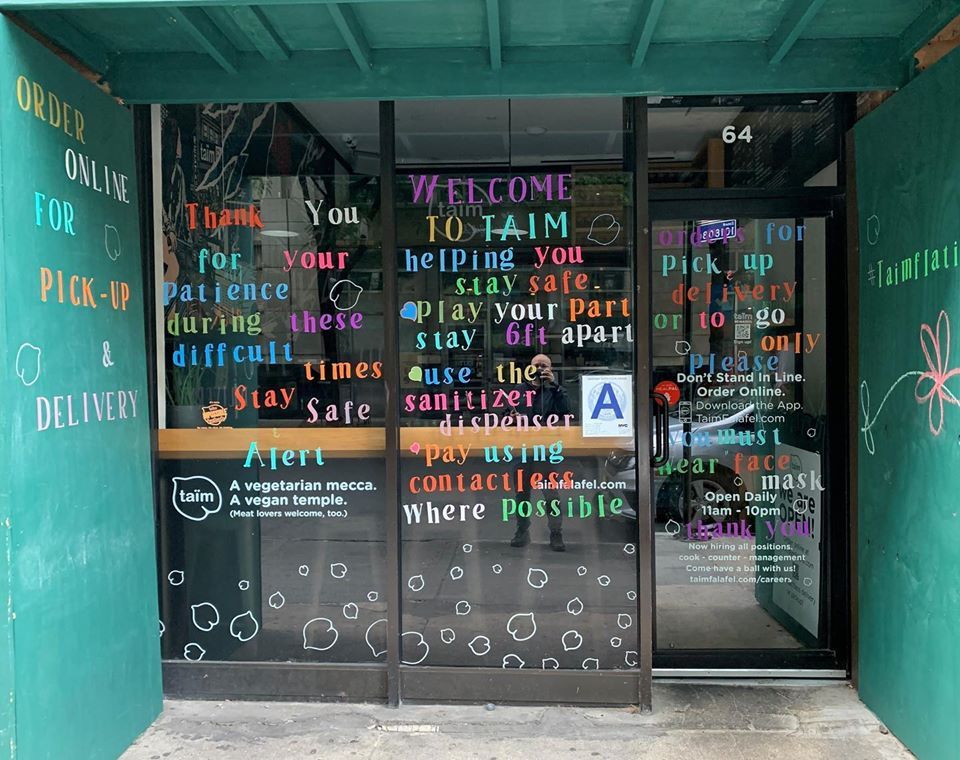 ORDER
ONLINE
FOR
PICK-UP
&
DELIVERY
Thank You
for your
Patience
during these
difficult
times
Stay
Safe
Alert
taïm
A vegetarian mecca.
A vegan temple.
(Meat lovers welcome, too.)
WELCOME
TO TAIM
helping you
stay safe
Play your part
stay 6ft apart
use the
sanitizer
dispenser
Pay using
contactless
Where Possible
taimfalafel.com
A
NYC
64
orders for
pick up
delivery
or to go
only
Please
Don't Stand In Line.
Order Online.
Download the App.
TaimFalafel.com
you must
wear face
mask
Open Daily
11am - 10pm
thank you
Now hiring all positions.
cook - counter - management
Come have a ball with us!
taimfalafel.com/careers
we are
open!
#Taimflati